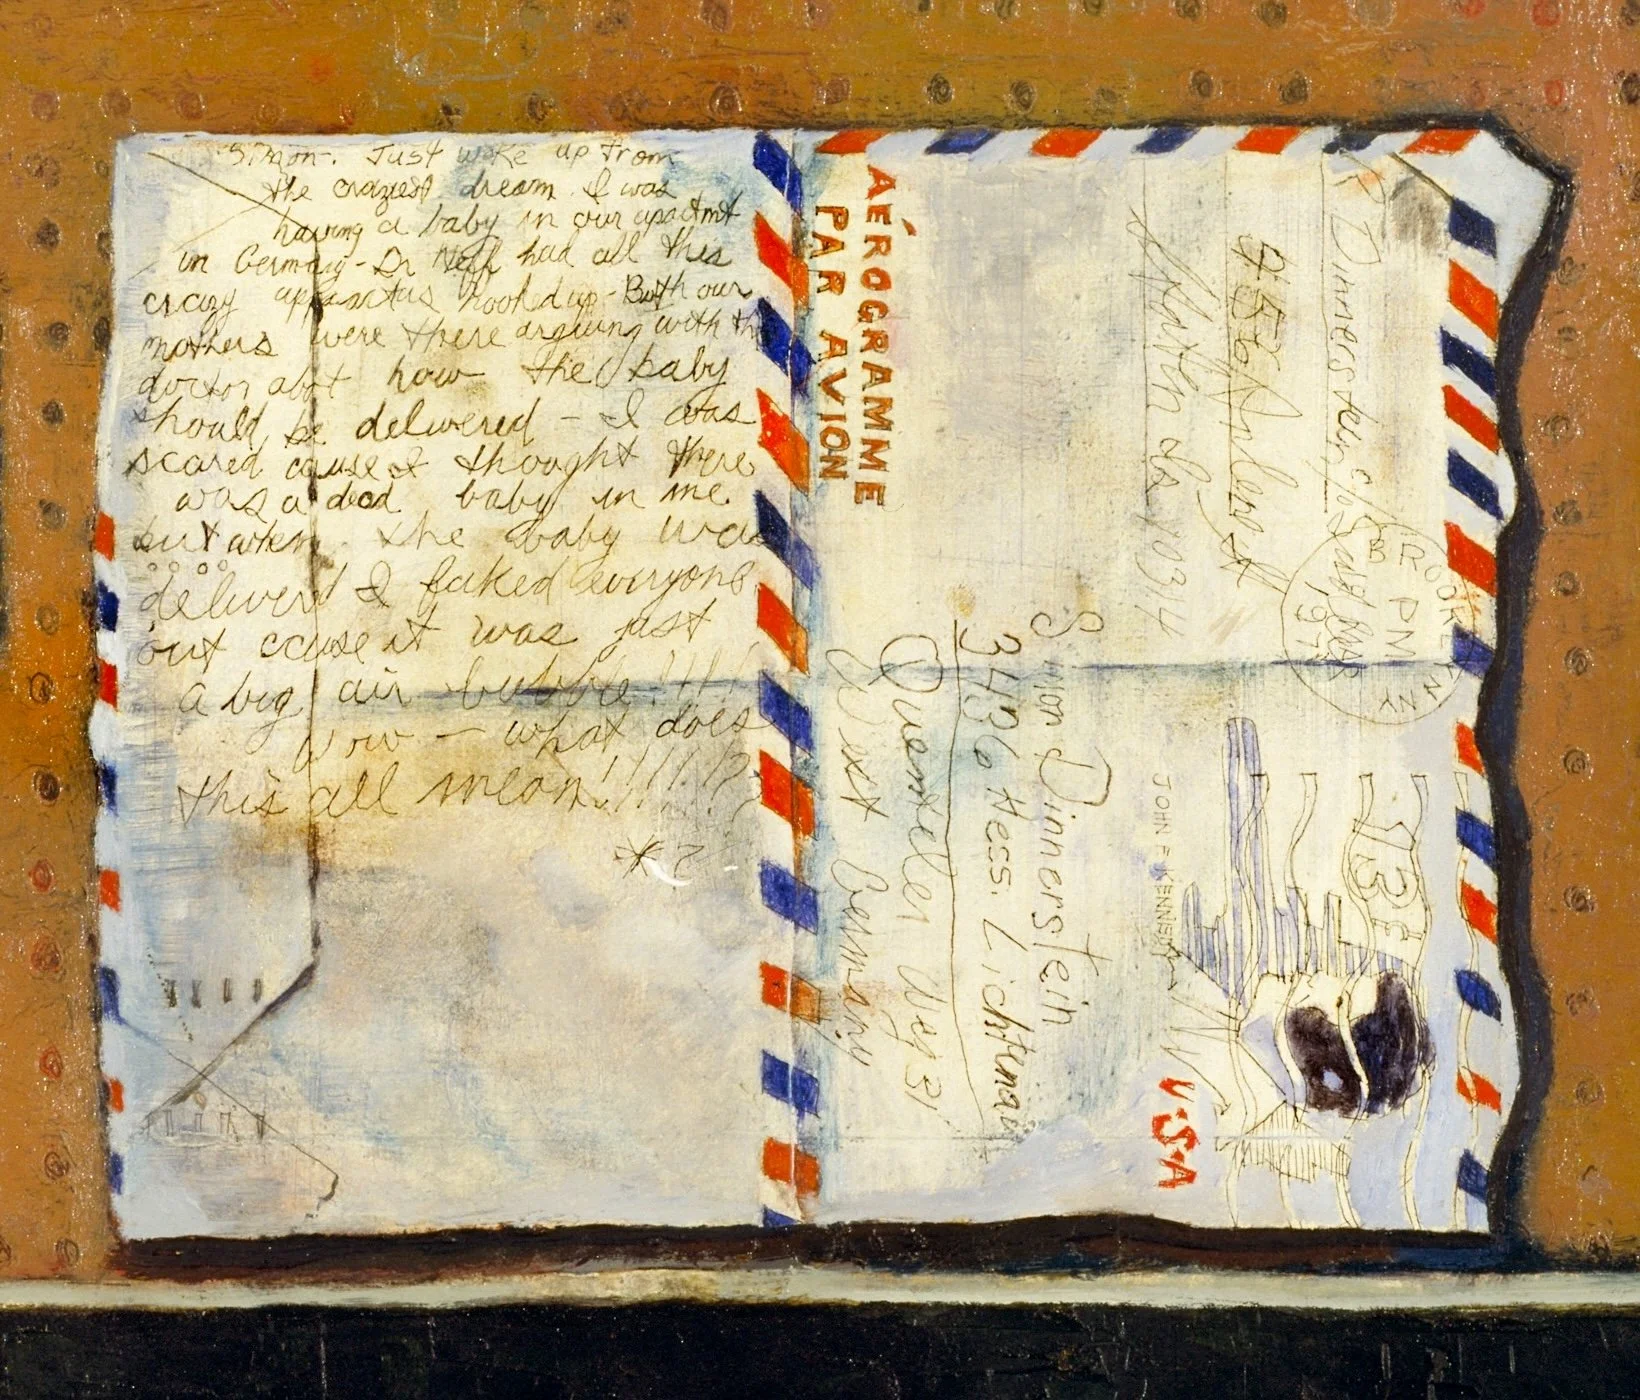 Simon-. Just woke up from
the craziest dream. I was
having a baby in our apartmt
in Germany - Dr Neff had all this
crazy apparatus hooked up - Both our
mothers were there arguing with the
doctor abot how the baby
should be delivered - I was
scared cause I thought there
was a dead baby in me.
but when the baby was
deliverd I faked everyone
out ccuse it was just
a big air bubble!!!!
Wow - what does
this all mean!!!!!?
AÉROGRAMME
PAR AVION
R Dinnerstein c/o
456
Staten Is 10314
BROOKLYN NY
PM
197
Simon Dinnerstein
3436 Hess. Lichtenau
Quenteler Weg 31
West Germany
13¢
JOHN F. KENNEDY
USA